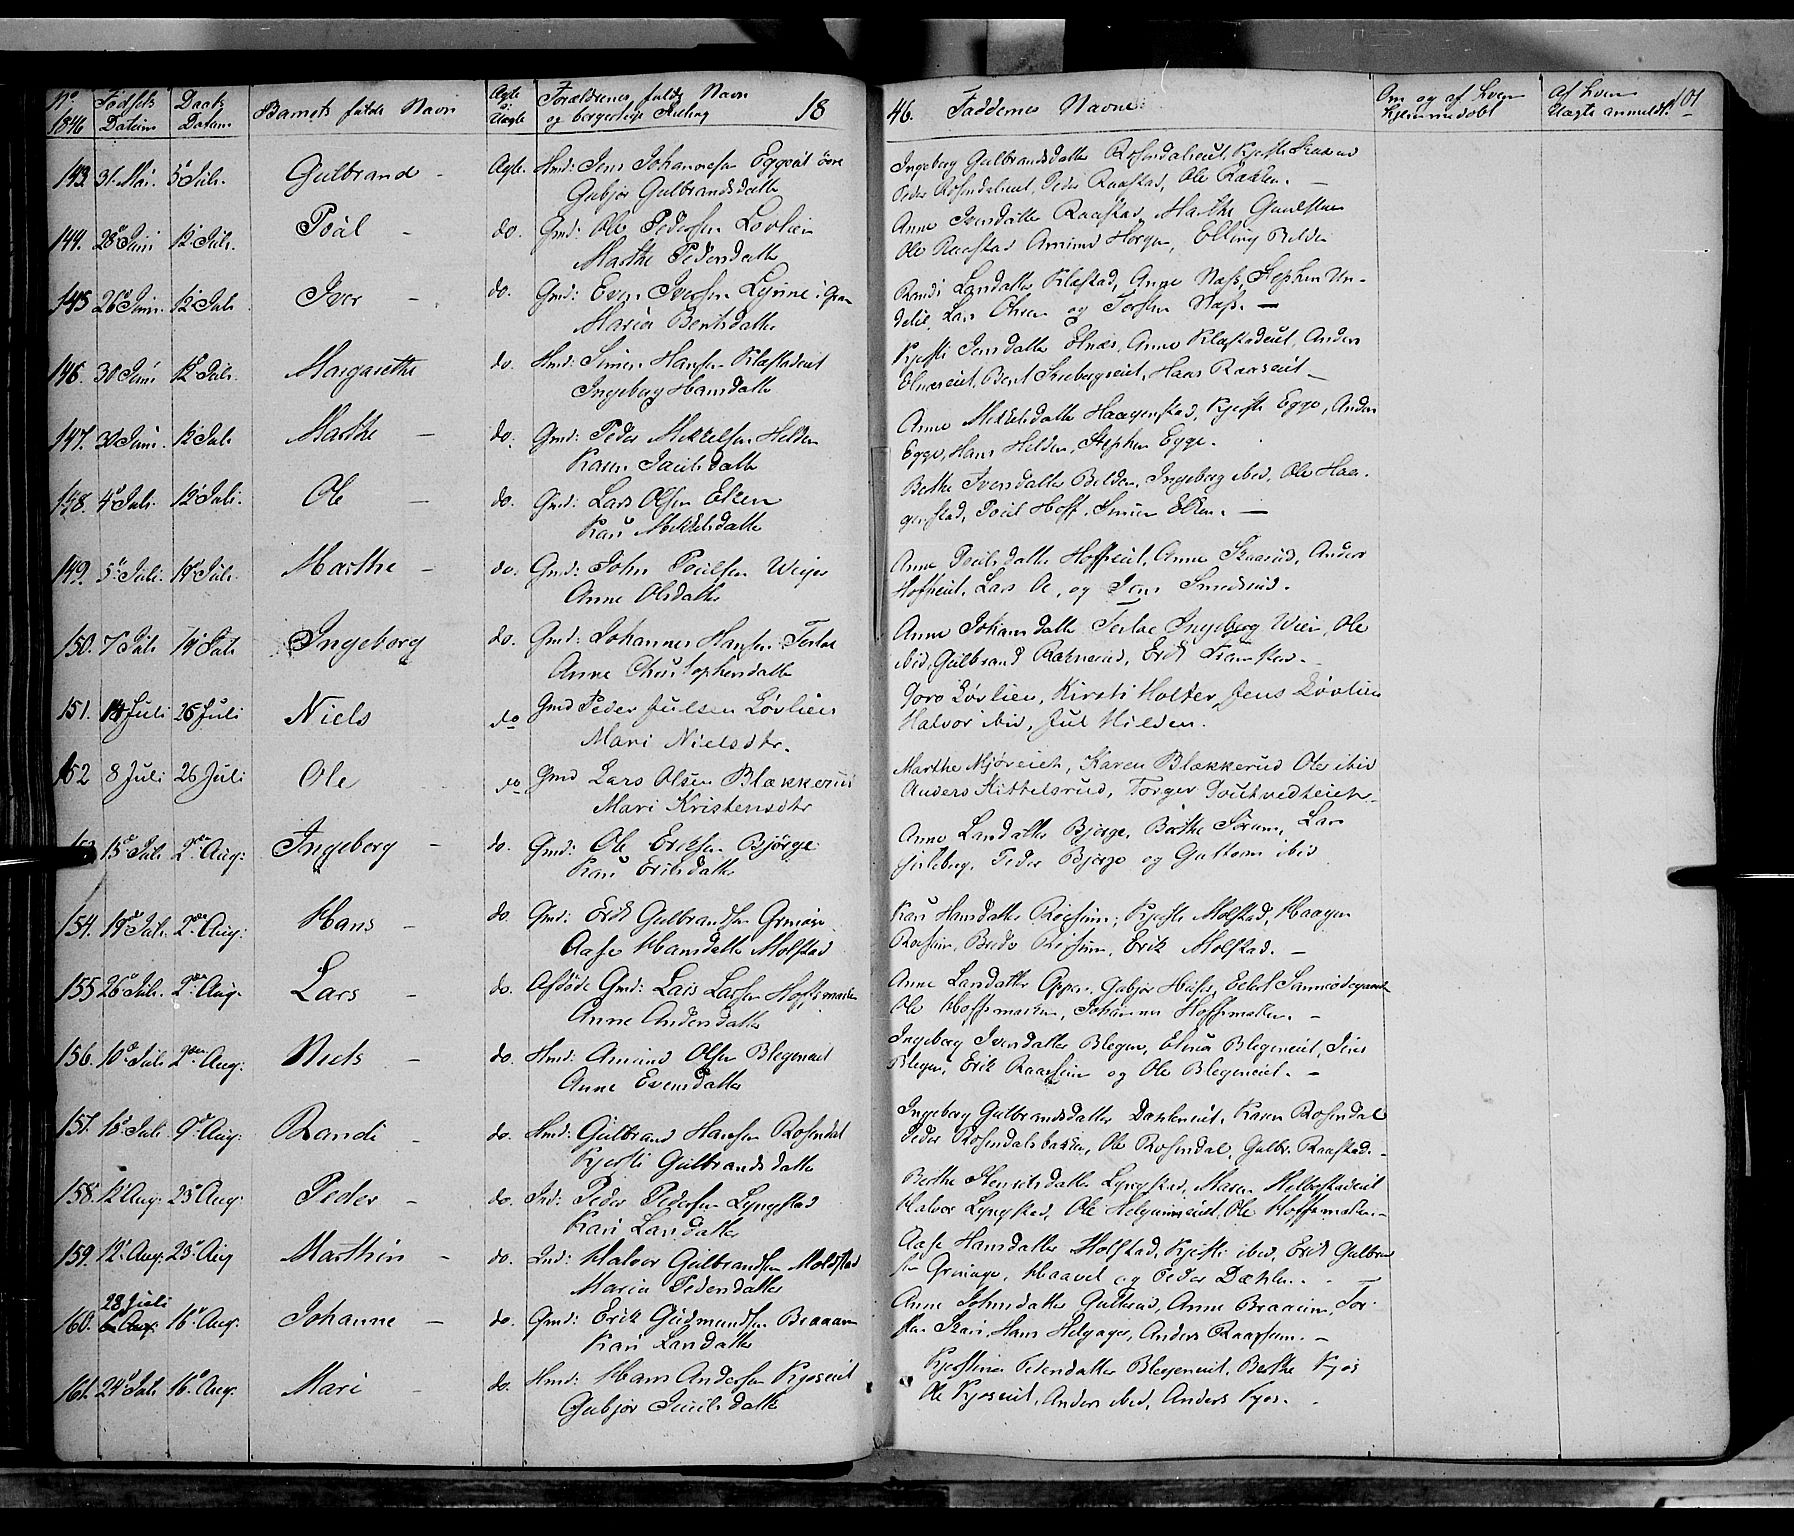 No 1846 Fødsels Datum Daabs Datum Barnets fulde Navn Ægte ell. Uægte Forældrenes fulde Navn og borgerlige Stilling 18
46. Faddernes Navne Om og af hvem hjemmedøbt Af hvem Uægte anmeldt. 101
143. 31. Mai. 5 Juli. Gulbrand - Ægte. Hmd: Jens Johannesen Eggeeit øvre
Gubjør Gulbrandsdatter
Ingeborg Gulbrandsdatter Rosendaleiet, Kjersti
Peder Rosendaleiet, Peder Raastad, Ole
144. 28 Juni 12 Juli. Poål - do. Gmd: Ole Pedersen Lovlien
Marthe Pedersdatter
Anne Iversdatter Raastad, Marthe
Ole Raastad Amund Horgen, Elling Belden
145 26 Juni. 12 Juli Iver - do. Gmd: Even Iversen Lynne i Gran
Maria Berthsdatter
Randi Larsdatter Klæstad, Næss, Stephen Un-
delie, Lars Ohren og Torsten Næss. -
146. 30 Juni 12 Juli. Margarethe do Hmd: Simen Hansen Klæstadeiet
Ingeborg Hansdatter
Kjersti Jensdatter Elnæs, Anne Klæstadeiet, Anders
Elnæseiet, Bent Hans -
147. 30 Juni 12 Juli Marthe - do. Gmd: Peder Mikkelsen Helden
Karen Paulsdatter
Anne Mikkelsdatter Haagenstad, Kjersti Egge, Anders
Egge, Hans Helden, Stephen Egge.
148. 4 Juli. 12 Juli. Ole - do. Gmd: Lars Olsen Elken
Kari Mikkelsdatter
Berthe Iversdatter Belden, Ingeborg ibid, Ole Haa-
genstad, Poul Hoff, Simen Elken. -
149. 5 Juli. 19 Juli. Marthe - do. Gmd: John Poulsen
Anne Olsdatter
Anne Poulsdatter Hoffseiet, Anne Skaarud, Anders
Hoffseiet, Lars og Jens Smedsrud.
150. 7 Juli 19 Juli Ingeborg do. Gmd: Johannes Hansen
Anne Christophersdatter
Anne Johansdatter Ingeborg Wien, Ole
ibid, Gulbrand Raknerud, Erik
151. 14 Juli 26 Juli Niels do Gmd Peder Julsen Løvlien
Mari Nielsdtr.
Goro Løvlien, Kirsti Holter, Jens Løvlien
Halvor ibid, Jul Hilden.
152 8 Juli 26 Juli Ole do Gmd Lars Olsen Blækkerud
Mari Kristensdtr
Marthe Mjøreiet, Karen Blækkerud Ole ibid
Anders Kittelsrud, Torger
15 Juli 2 Aug: Ingeborg - do. Gmd: Ole Eriksen Bjørge
Kari Eriksdatter
Anne Larsdatter Bjørge, Berthe Sørum, Lars
Peder Bjørge og Guttorm ibid
154. 19 Juli. 2 Aug: Hans - do. Gmd: Erik Gulbrandsen
Aase Hansdatter Molstad
Kari Hansdatter Kjersti Molstad, Haagen
Erik Molstad. -
155 26 Juli. 2 Aug. Lars - do. Afdøde Gmd: Lars Larsen Hoffsmarken
Anne Andersdatter
Anne Larsdatter Gubjør
Ole Hoffsmarken, Johannes Hoffsmarken. -
156. 10 Juli 2 Aug: Niels - do. Hmd: Amund Olsen Blegeneiet
Anne Evensdatter
Ingeborg Iversdatter Blegen, Blegeneiet, Jens
Blegen, Erik og Ole Blegeneiet. -
157. 18 Juli 9 Aug: Randi - do. Hmd: Gulbrand Hansen Rosendal
Kjersti Gulbrandsdatter
Ingeborg Gulbrandsdatter Karen Rosendal
Peder Rosendalsbakken, Ole Rosendal, Gulbr. Raastad. -
158. 12 Aug: 23 Aug: Peder - do. Ind: Peder Pedersen Lyngstad
Kari Larsdatter
Berthe Lyngstad, Maren
Halvor Lyngstad, Ole Ole Hoffsmarken. -
159. 12 Aug: 23 Aug Marthin - do. Ind: Halvor Gulbrandsen Moldstad
Maria Pedersdatter
Aase Hansdatter Molstad, Kjersti ibid, Erik Gulbrand-
sen og Peder Dæhlen.
160. 28 Juli 16 Aug: Johanne - do. Gmd: Erik Gudmundsen Braaum
Kari Larsdatter
Anne Johnsdatter Gutterud, Anne
Hans Helgager, Anders -
161. 24 Juli 16 Aug: Mari - do. Hmd: Hans Andersen Kjoseiet
Gubjør Poulsdatter
Kjerstina Pedersdatter Blegeneiet, Berthe Kjos
Ole Kjoseiet, Anders ibid, Anders Kjos. -